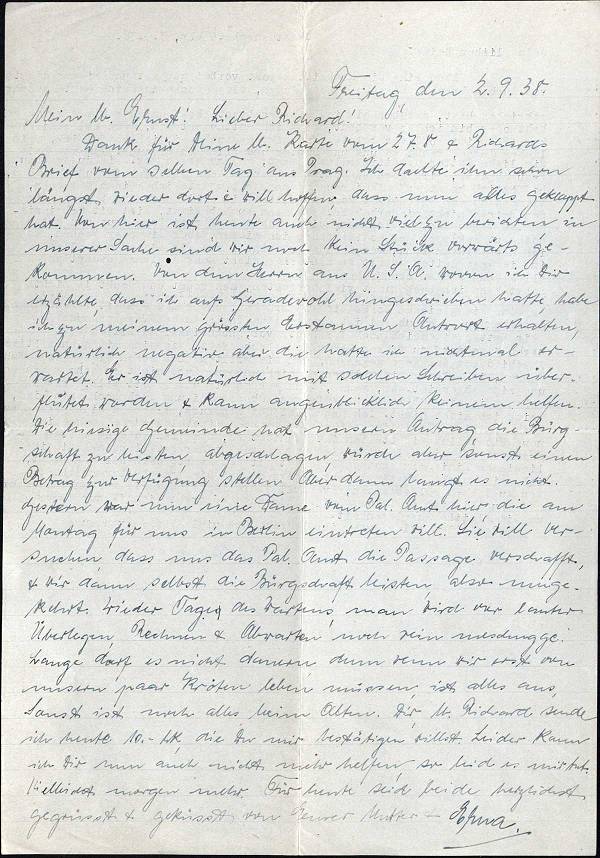 Freitag, den 2.9.38.
Mein lb. Ernst! Lieber Richard!
Dank für Deine lb. Karte vom 27.8 & Richards
Brief vom selben Tag aus Prag. Ich dachte ihn schon
längst wieder dort & will hoffen, dass nun alles geklappt
hat. Von hier ist heute auch nicht viel zu berichten in
unserer Sache sind wir noch kein Stück vorwärts ge-
kommen. Von dem Herrn aus U.S.A. wovon ich Dir
erzählte, dass ich aufs Geradewohl hingeschrieben hatte, habe
ich zu meinem grössten Erstaunen Antwort erhalten,
natürlich negativ aber die hatte ich nichtmal er-
wartet. Er ist natürlich mit solchen Schreiben über-
flutet worden & kann augenblicklich keinem helfen.
Die hiesige Gemeinde hat unsern Antrag die Bürg-
schaft zu leisten, abgeschlagen, würde aber sonst einen
Betrag zur Verfügung stellen. Aber dann langt es nicht.
Gestern war nun eine Dame vom Pal. Amt hier, die am
Montag für uns in Berlin eintreten will. Sie will ver-
suchen dass uns das Pal. Amt die Passage verschafft,
& wir dann selbst die Bürgschaft leisten, also umge-
kehrt. Wieder Tage des Wartens, man wird vor lauter
Überlegen, Rechnen & Abwarten noch rein meschugge.
Lange darf es nicht dauern denn wenn wir erst von
unsern paar Kröten leben müssen, ist alles aus.
Sonst ist noch alles beim Alten. Dir lb. Richard sende
ich heute 10.- die Du mir bestätigen willst. Leider kann
ich Dir nun auch nicht mehr helfen, so leid es mir tut.
Vielleicht morgen mehr. Für heute seid beide herzlichst
gegrüsst & geküsst von Eurer Mutter -